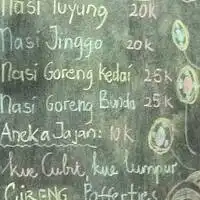 Nasi Tuyung 20K
Nasi Jinggo 20K
Nasi Goreng Kedai 25K
Nasi Goreng Bunda 25K
Aneka Jajan: 10K
Kue Cubit, kue Lumpur
CIRENG Poffertjes